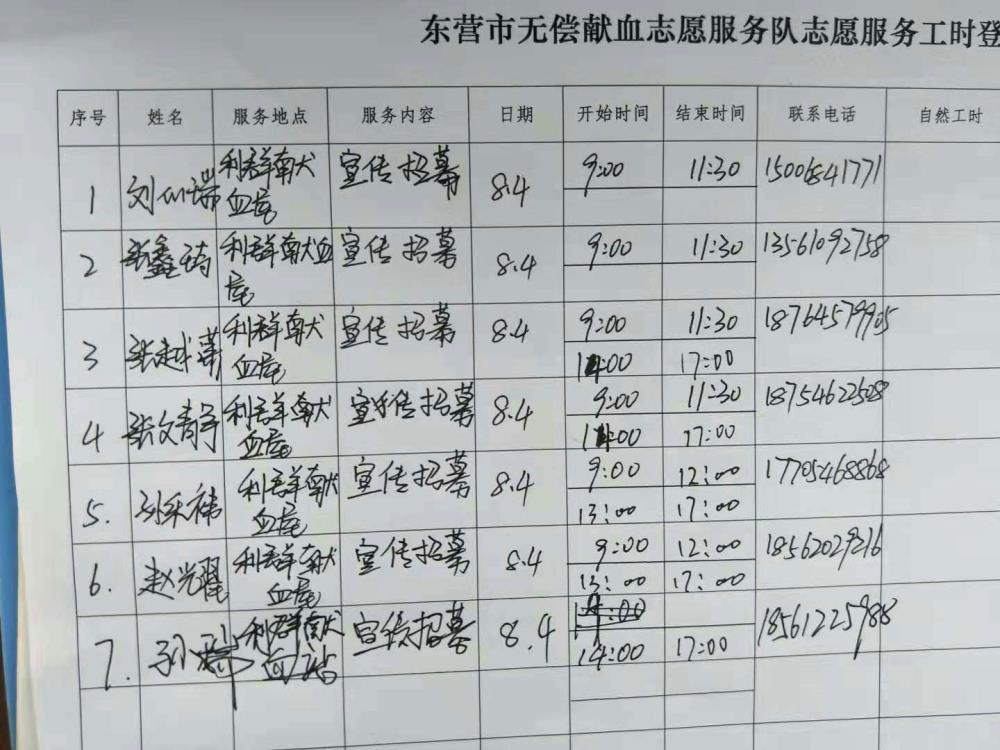 东营市无偿献血志愿服务队志愿服务工时登
序号 姓名 服务地点 服务内容 日期 开始时间 结束时间 联系电话 自然工时
1 利群献血屋 宣传招募 8.4 9:00 11:30 15006841771
2 张鑫琦 利群献血屋 宣传招募 8.4 9:00 11:30 13561092758
3 利群献血屋 宣传招募 8.4 9:00 11:30 18764579905
14:00 17:00
4 利群献血屋 宣传招募 8.4 9:00 11:30 18754622508
14:00 17:00
5. 利群献血屋 宣传招募 8.4 9:00 12:00 17705468868
13:00 17:00
6. 赵光耀 利群献血屋 宣传招募 8.4 9:00 12:00
13:00 17:00
7. 孙 利群献血站 宣传招募 8.4 18561225988
14:00 17:00